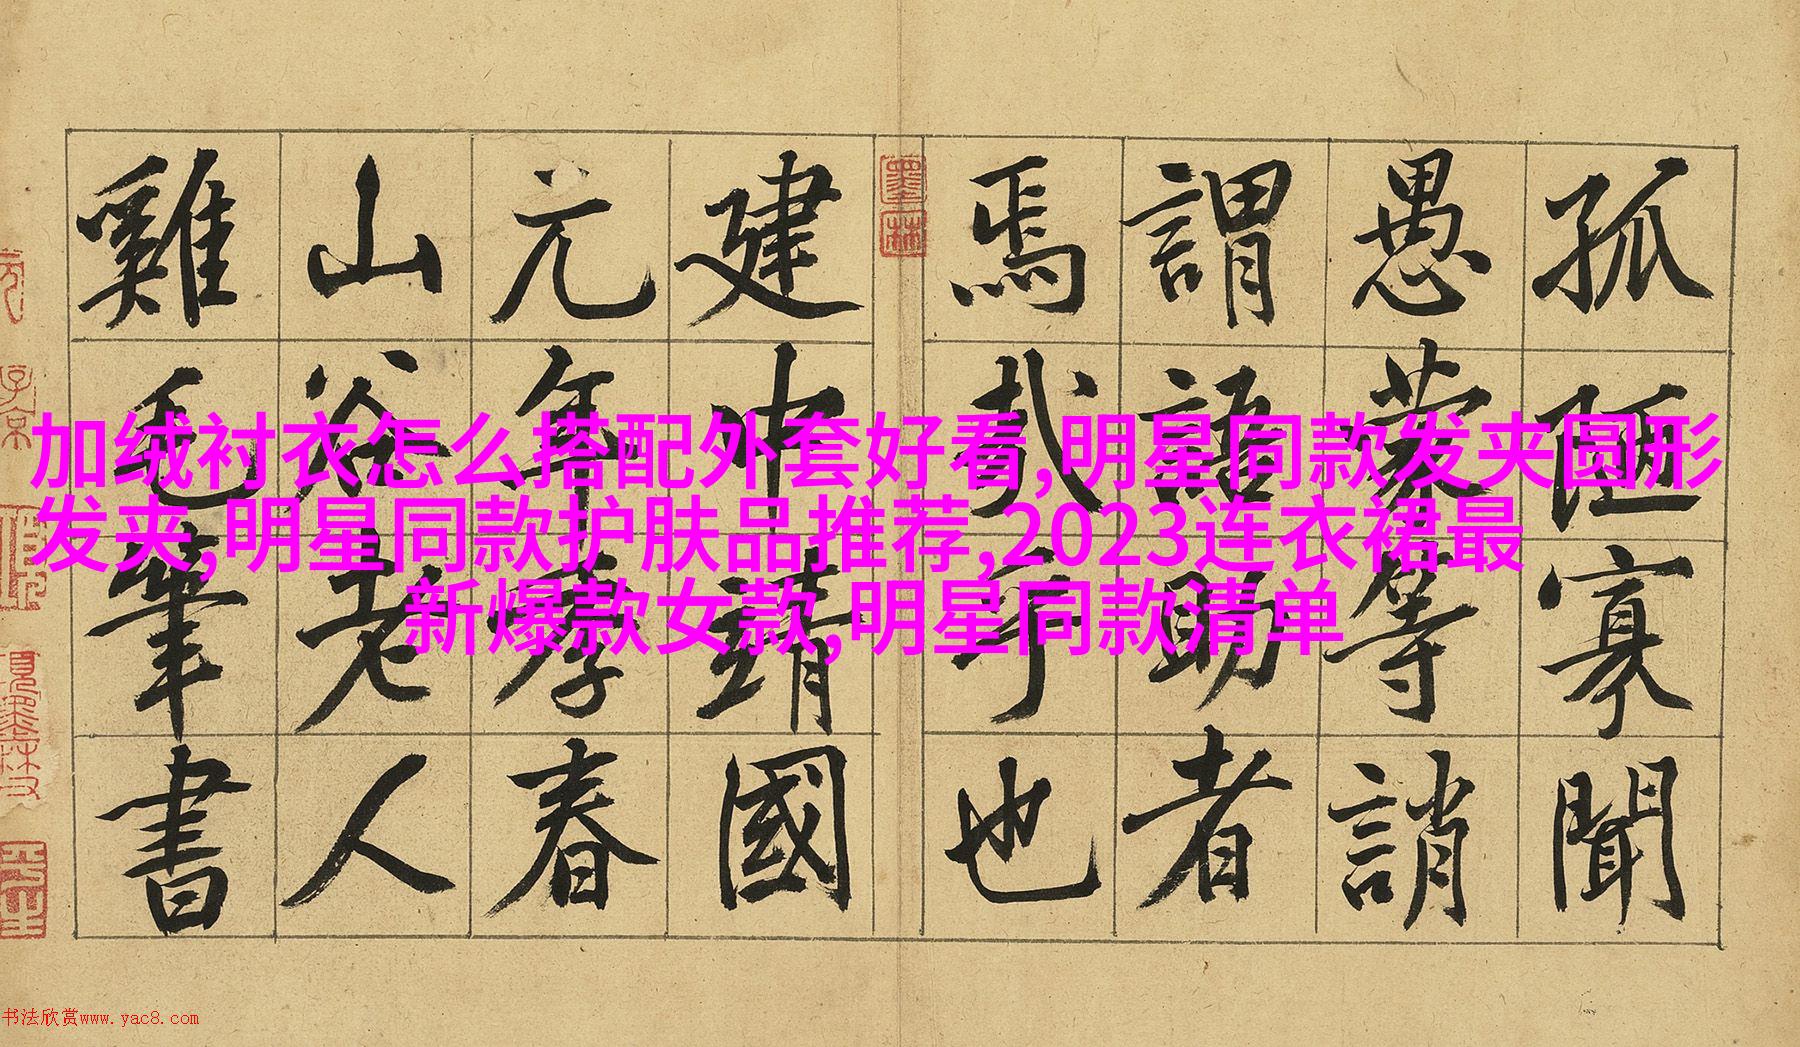 孤陋寡聞
愚蒙等誚
謂語助者
焉哉乎也
建中靖國
元年季春
山谷老人
雞毛筆書
墨林
子京
加绒衬衣怎么搭配外套好看,明星同款发夹圆形
发夹,明星同款护肤品推荐,2023连衣裙最
新爆款女款,明星同款清单
书法欣赏www.yac8.com